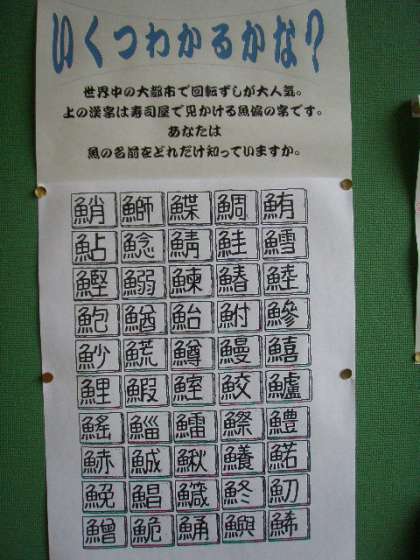 いくつわかるかな?
世界中の大都市で回転ずしが大人気。
上の漢字は寿司屋で見かける魚偏の字です。
あなたは
魚の名前をどれだけ知っていますか。
鮹 鰤 鰈 鯛 鮪
鮎 鯰 鯖 鮭 鱈
鰹 鰯 鰊 鰆 鯥
鮑 鰌 鮐 鮒 鰺
魦 𩺊 鱒 鰻 鱚
鯉 鰕 鰘 鮫 鱸
鰩 鯔 鱩 鰶 鱧
鯎 鰍 鱶 鰙
鮸 鯧 鱵 鮗 魛
鱛 鮠 鯒 鱮 鯑